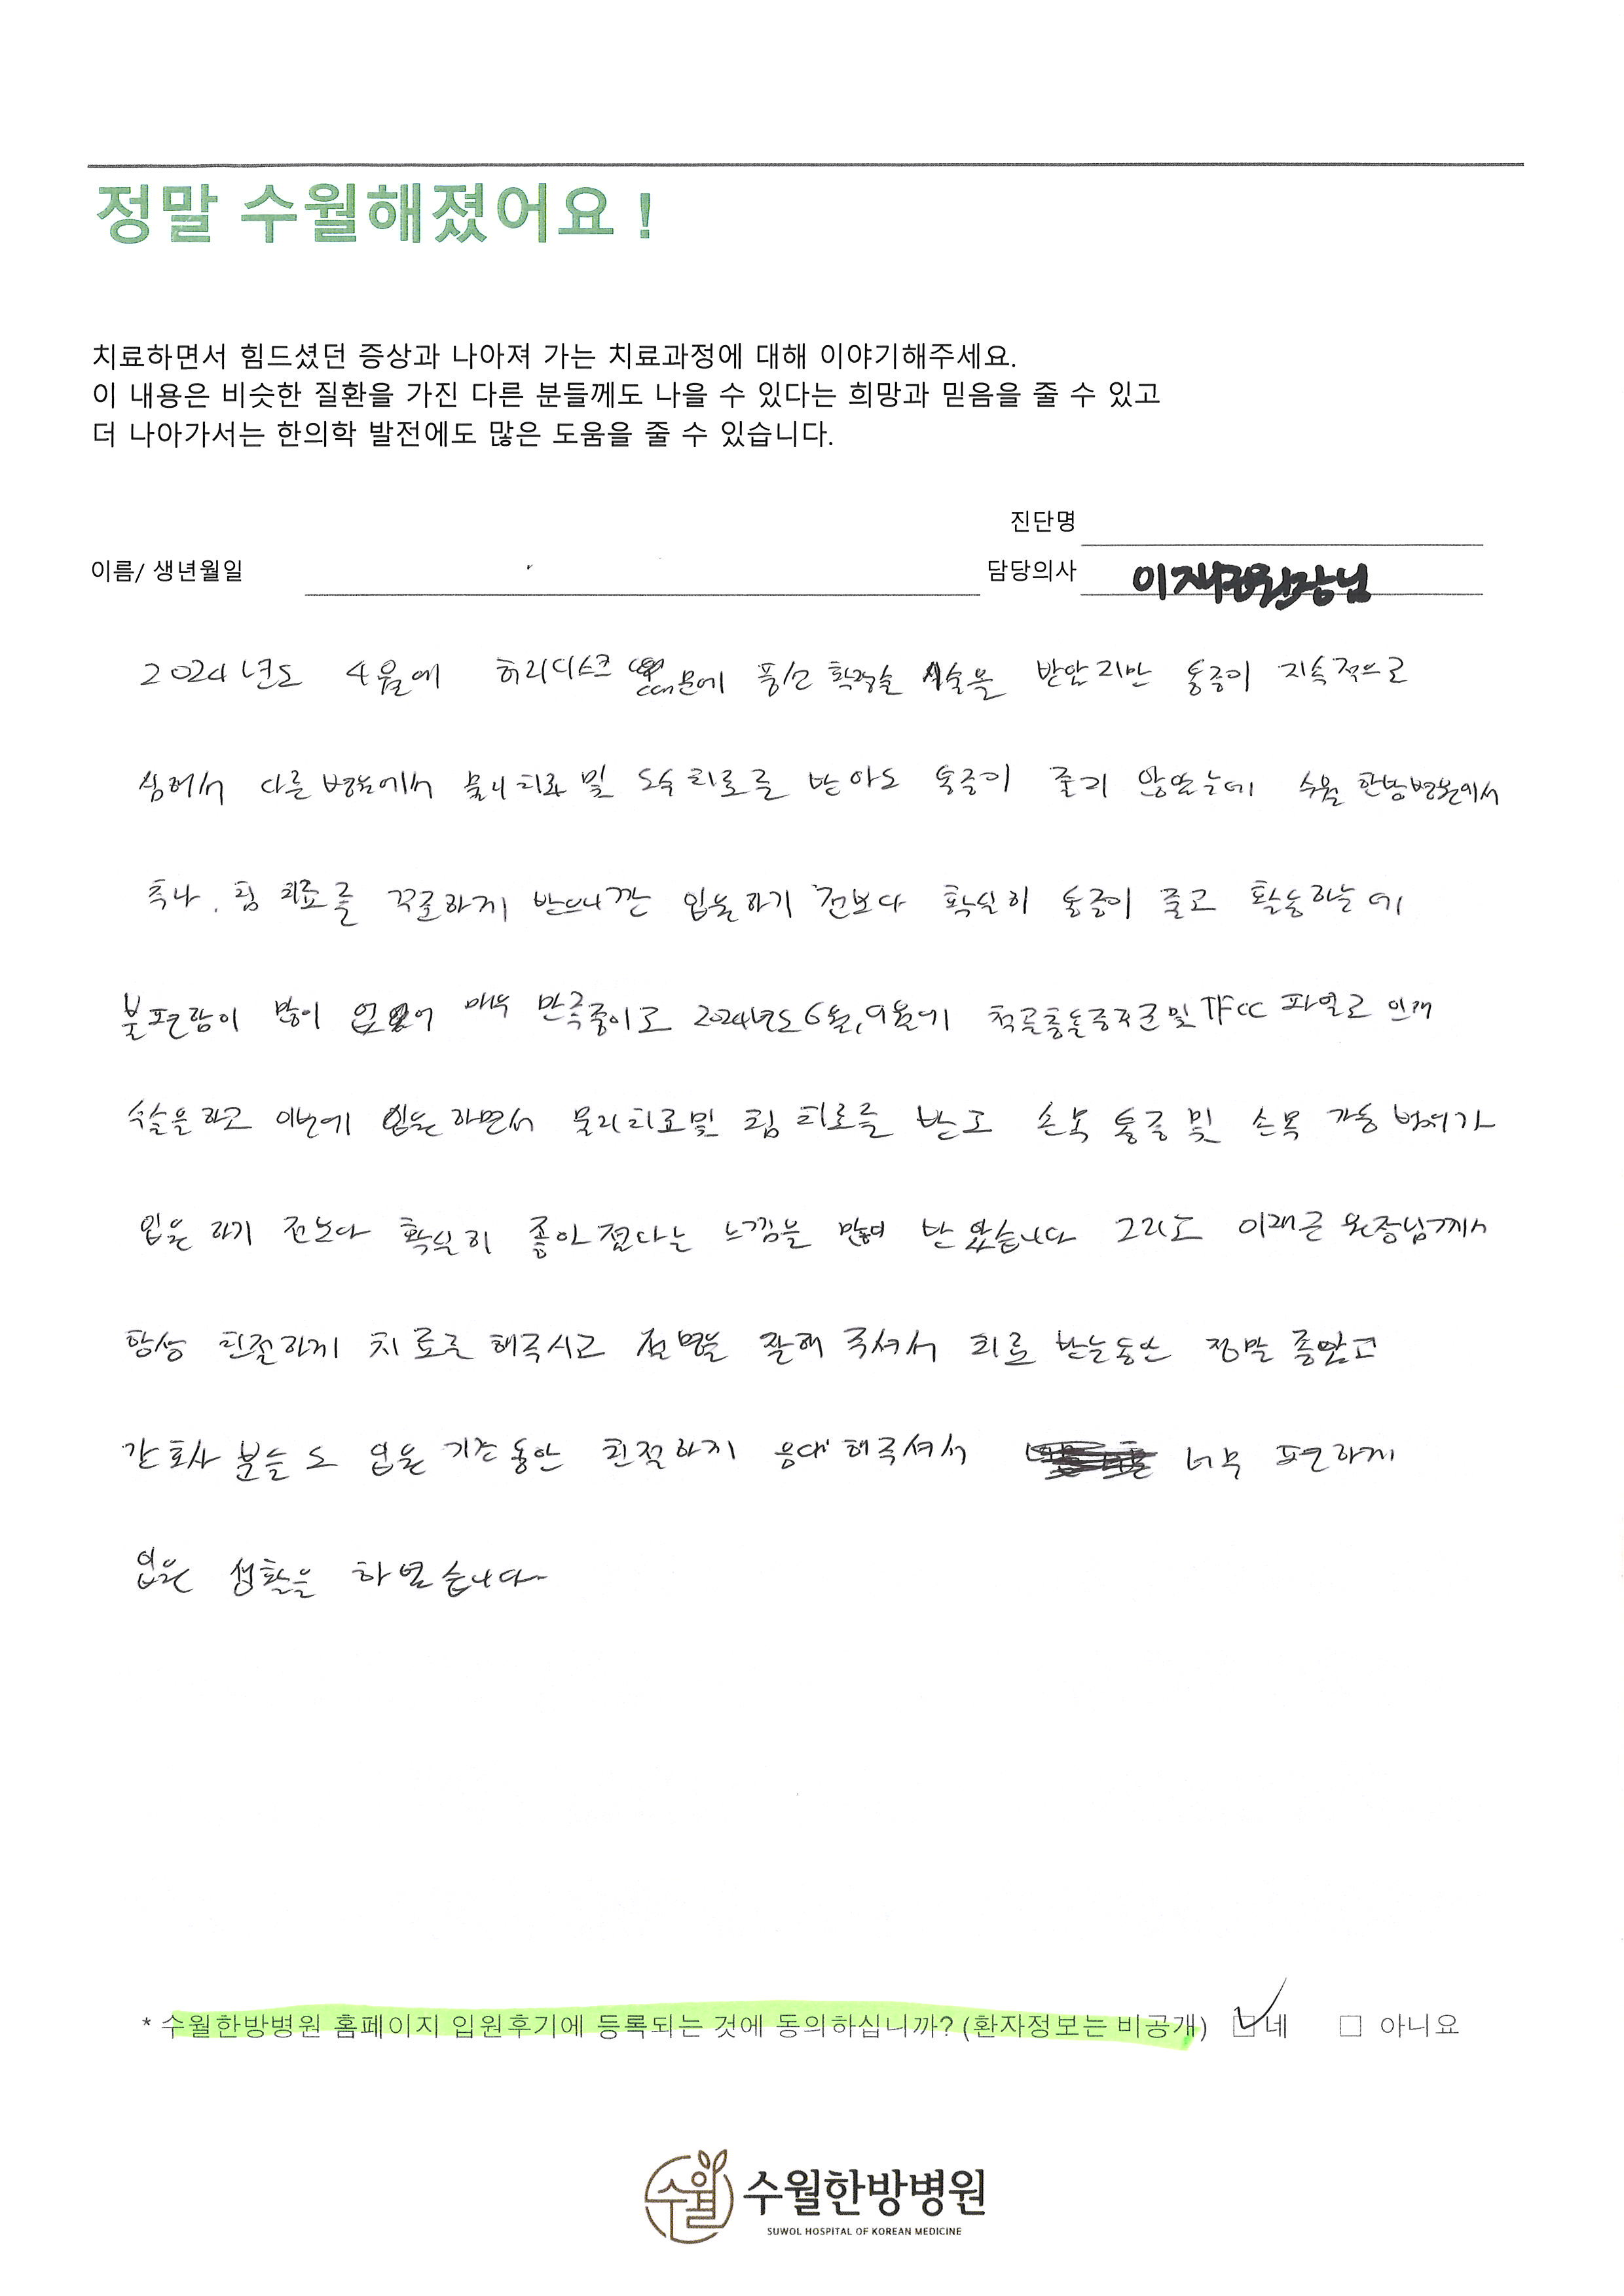 정말 수월해졌어요 !
치료하면서 힘드셨던 증상과 나아져 가는 치료과정에 대해 이야기해주세요.
이 내용은 비슷한 질환을 가진 다른 분들께도 나을 수 있다는 희망과 믿음을 줄 수 있고
더 나아가서는 한의학 발전에도 많은 도움을 줄 수 있습니다.
진단명
이름/ 생년월일 담당의사 원장님
2024년도 4월에 허리디스크 때문에 풍선 확장술 시술을 받았지만 통증이 지속적으로
심해서 다른 병원에서 물리치료 및 도수치료를 받아도 통증이 줄지 않았는데 수월 한방병원에서
추나, 침 치료를 꾸준하게 받으니깐 입원하기 전보다 확실히 통증이 줄고 활동하는데
불편함이 많이 없어 매우 만족중이고 2024년도 6월, 9월에 척골충돌증후군 및 TFCC 파열로 인해
수술을 하고 이번에 입원 하면서 물리치료 및 침 치료를 받고 손목 통증 및 손목 가동 범위가
입원 하기 전보다 확실히 좋아졌다는 느낌을 많이 받았습니다 그리고 이재근 원장님께서
항상 친절하게 치료를 해주시고 설명을 잘해 주셔서 치료 받는동안 정말 좋았고
간호사 분들도 입원 기간동안 친절하게 응대해주셔서 너무 편하게
입원 생활을 하였습니다
* 수월한방병원 홈페이지 입원후기에 등록되는 것에 동의하십니까? (환자정보는 비공개) ☑ 네 □ 아니요
수월 수월한방병원
SUWOL HOSPITAL OF KOREAN MEDICINE